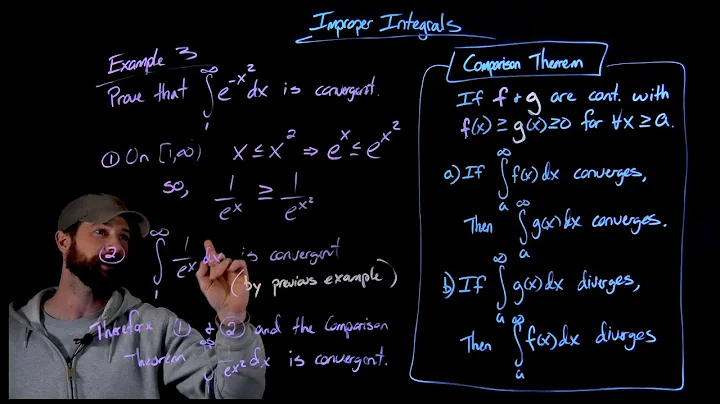 Improper Integrals
Example 3
Prove that ∫₁^∞ e^(-x²) dx is convergent.
① On [1,∞) x ≤ x² ⇒ e^x ≤ e^(x²)
so, 1/e^x ≥ 1/e^(x²)
② ∫₁^∞ 1/e^x dx is convergent
(by previous example)
Therefore ① & ② and the Comparison
Theorem ∫^∞ 1/e^(x²) dx is convergent.
Comparison Theorem
If f & g are cont. with
f(x) ≥ g(x) ≥ 0 for ∀x ≥ a.
a) If ∫ₐ^∞ f(x) dx converges,
Then ∫ₐ^∞ g(x) dx converges.
b) If ∫ₐ^∞ g(x) dx diverges,
Then ∫ₐ^∞ f(x) dx diverges